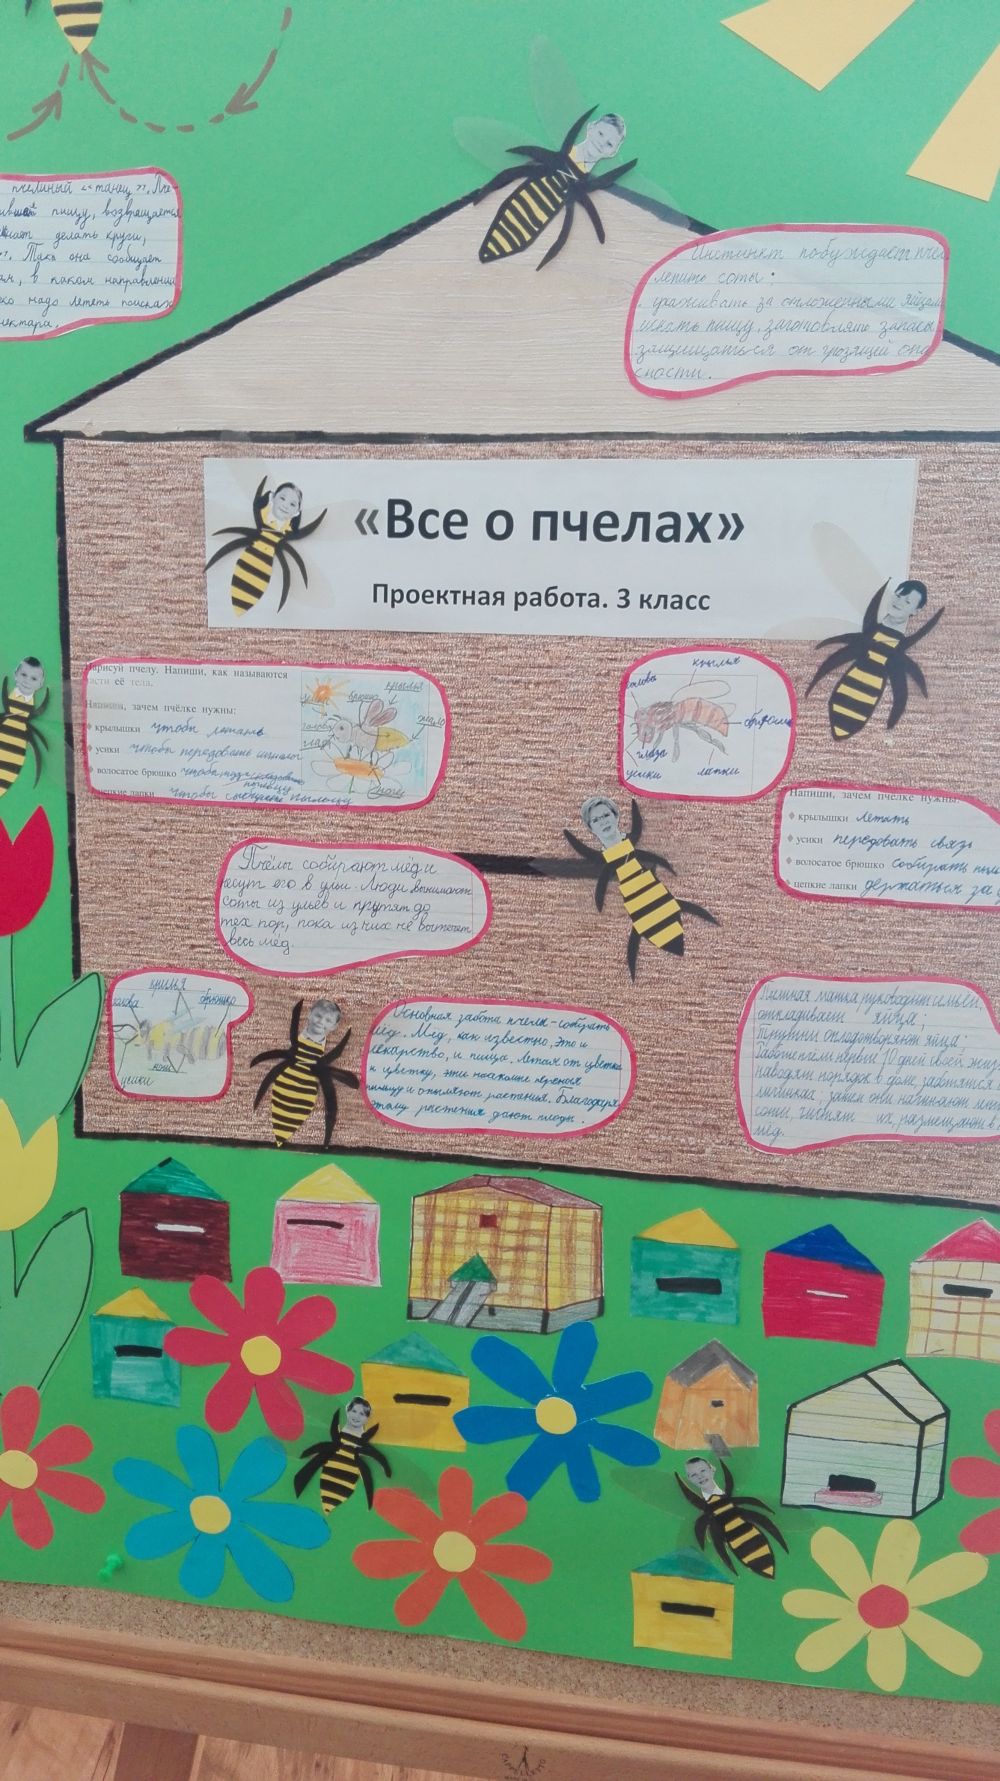 пчелиный «танец». Пче-
пищу, возвращается
делать круги,
Така она сообщает
в каком направлении
надо лететь поисках
нектара.
Инстинкт побуждает пчел
лепить соты;
ухаживать за отложенными яйцами
искать пищу, заготовлять запасы
защищаться от грозящей опа
сности.
«Все о пчелах»
Проектная работа. 3 класс
Нарисуй пчелу. Напиши, как называются
части её тела.
Напиши, зачем пчёлке нужны:
крылышки чтобы летать
усики чтобы передовать
волосатое брюшко чтобы
цепкие лапки чтобы пыльцу
крылья
брюшко
голова
глаз
жало
ноги
крылья
голова
брюшко
глаза
усики
лапки
Напиши, зачем пчёлке нужны:
крылышки летать
усики передовать связь
волосатое брюшко собирать
цепкие лапки держаться за
Пчёлы собирают мёд и
несут его в улья. Люди вынимают
соты из ульев и крутят до
тех пор, пока из них не вытечет
весь мёд.
крылья
голова
брюшко
усики
Основная забота пчелы - собирать
мёд. Мёд, как известно, это и
лекарство, и пища. Летая от цветка
к цветку, эти насекомые переносят
пыльцу и опыляют растения. Благодаря
этому растения дают плоды.
матка руководит семьёй,
откладывает яйца;
Трутни оплодотворяют яйца;
Работницы первые 10 дней своей жизни
наводят порядок в доме, заботятся
личинках; затем они начинают
соты, чистят их, размещают в
мёд.